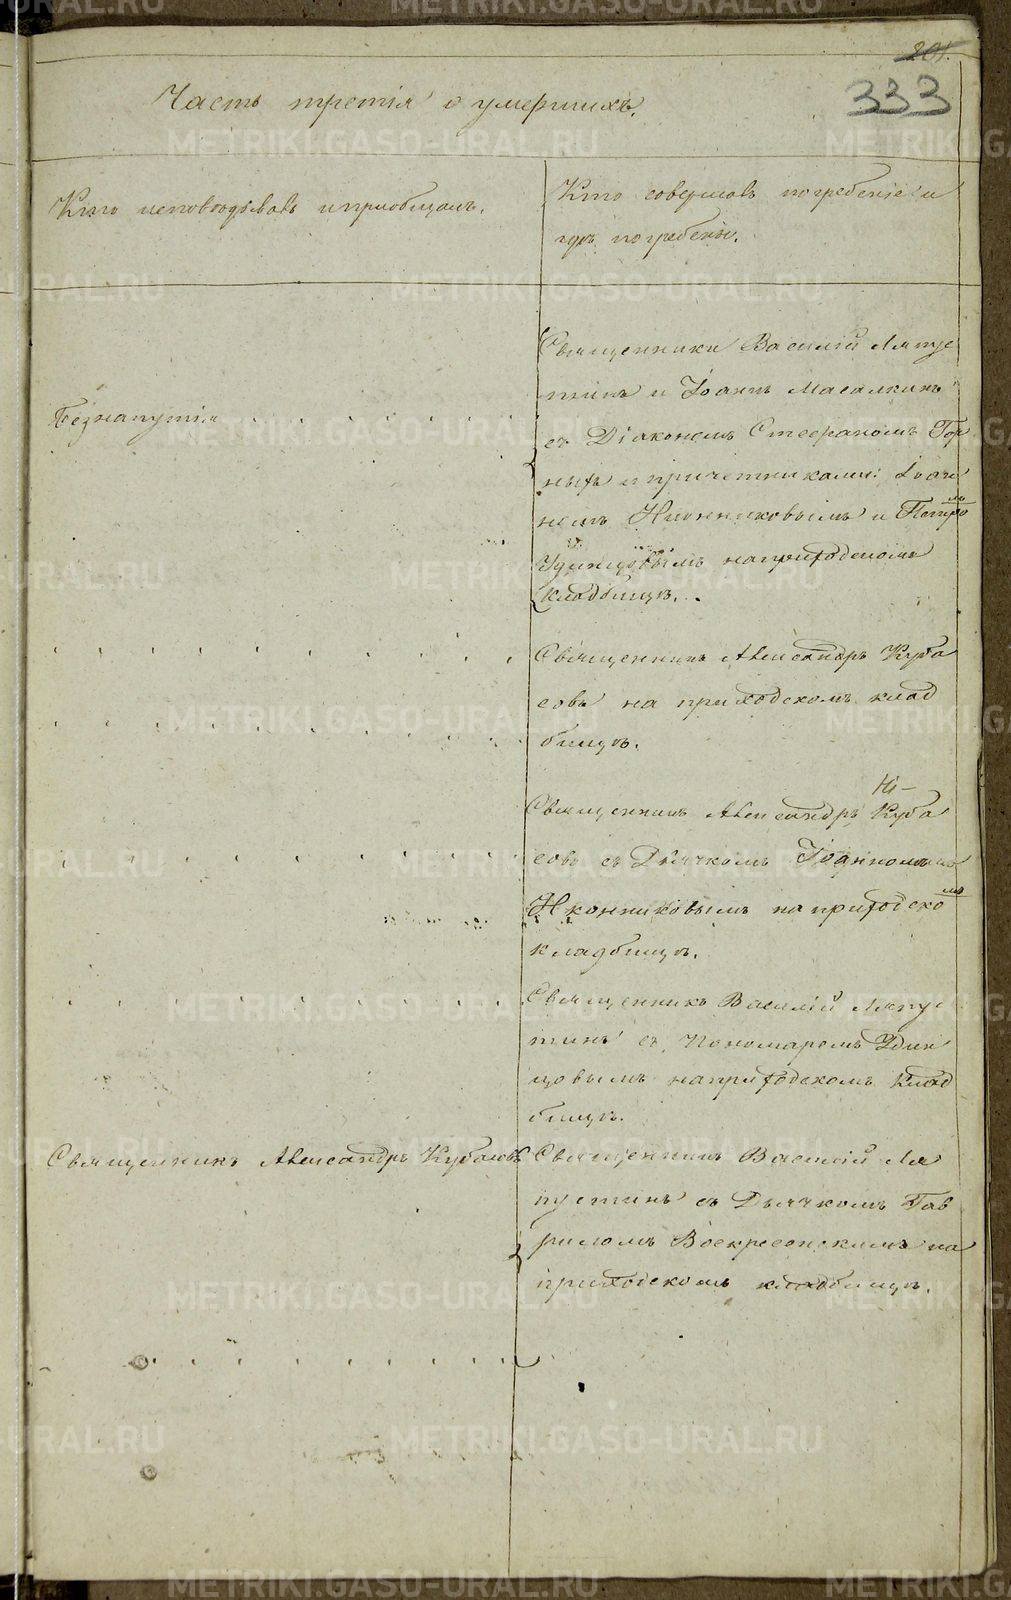 201.
333
Часть третія о умершихъ.
Кто исповѣдывалъ и пріобщалъ.
Кто совершалъ погребеніе и
гдѣ погребены.
Священники Василій Ляпус
тинъ и Іоаннъ Масалкинъ
Безнапутія
съ Діакономъ Стефаномъ Гор
ныхъ и причетниками: Іоан
номъ Иконниковымъ и Петро
мъ
Удинцовымъ на приходскомъ
кладбищѣ.
Священникъ Александръ Куба
совъ на приходскомъ клад
бищѣ.
Священникъ Александръ Куба
совъ съ Дьячкомъ Іоанномъ
Иконниковымъ на приходско
мъ
кладбищѣ.
Священникъ Василій Ляпус
тинъ съ Пономаремъ Удин
цовымъ на приходскомъ клад
бищѣ.
Священникъ Александръ Кубасовъ
Священникъ Василій Ля
пустинъ съ Дьячкомъ Гав
риломъ Воскресенскимъ на
приходскомъ кладбищѣ.
METRIKI.GASO-URAL.RU